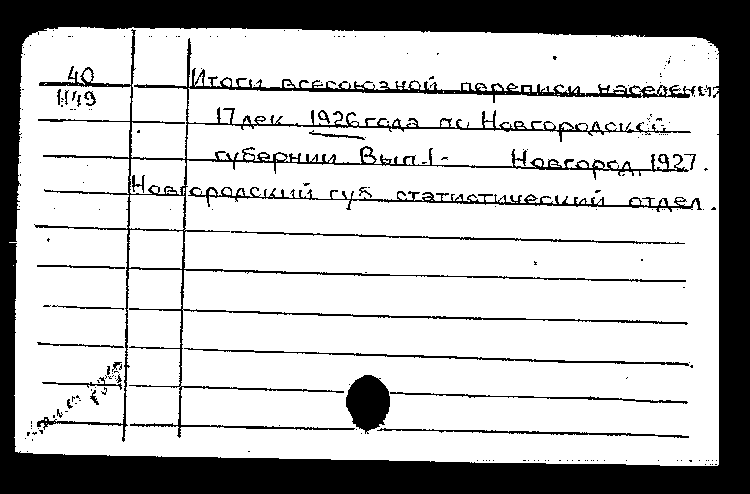 40
1149
Итоги всесоюзной переписи населения
17 дек. 1926 года по Новгородской
губернии Вып. 1- Новгород, 1927.
Новгородский губ статистический отдел.